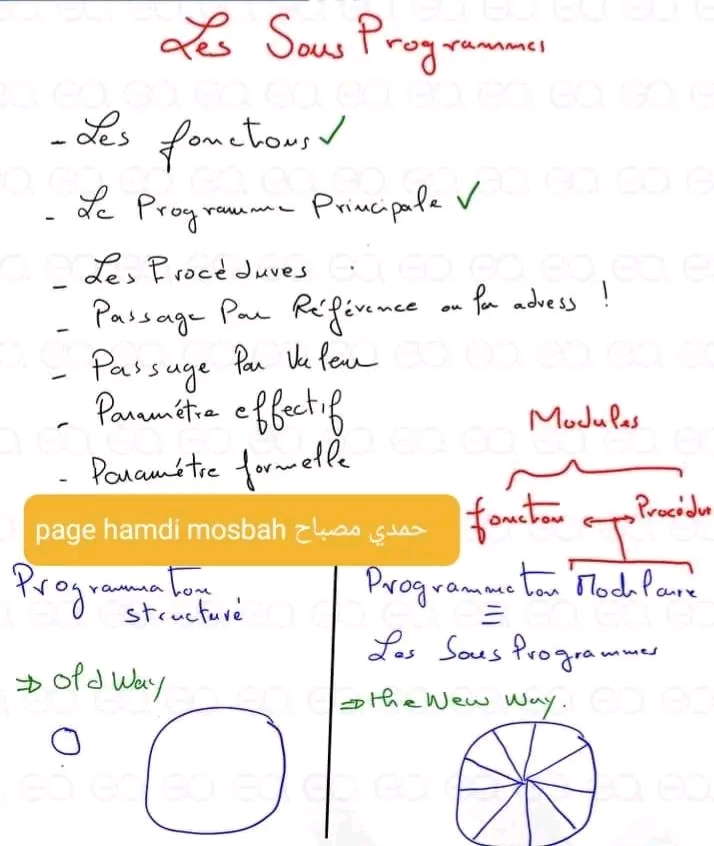 Les Sous Programmes
- Les fonctons ✓
- Le Programme Principale ✓
- Les Procédures
- Passage Par Référence ou par adress !
- Passage Par Valeur
- Paramétre effectif
- Paramétre formelle
Modules
fonction ↔ Procédur
page hamdi mosbah حمدي مصباح
Programmation
structuré
⇒ old Way
Programmation Modulaire
≡
Les Sous Programmes
⇒ the New Way.